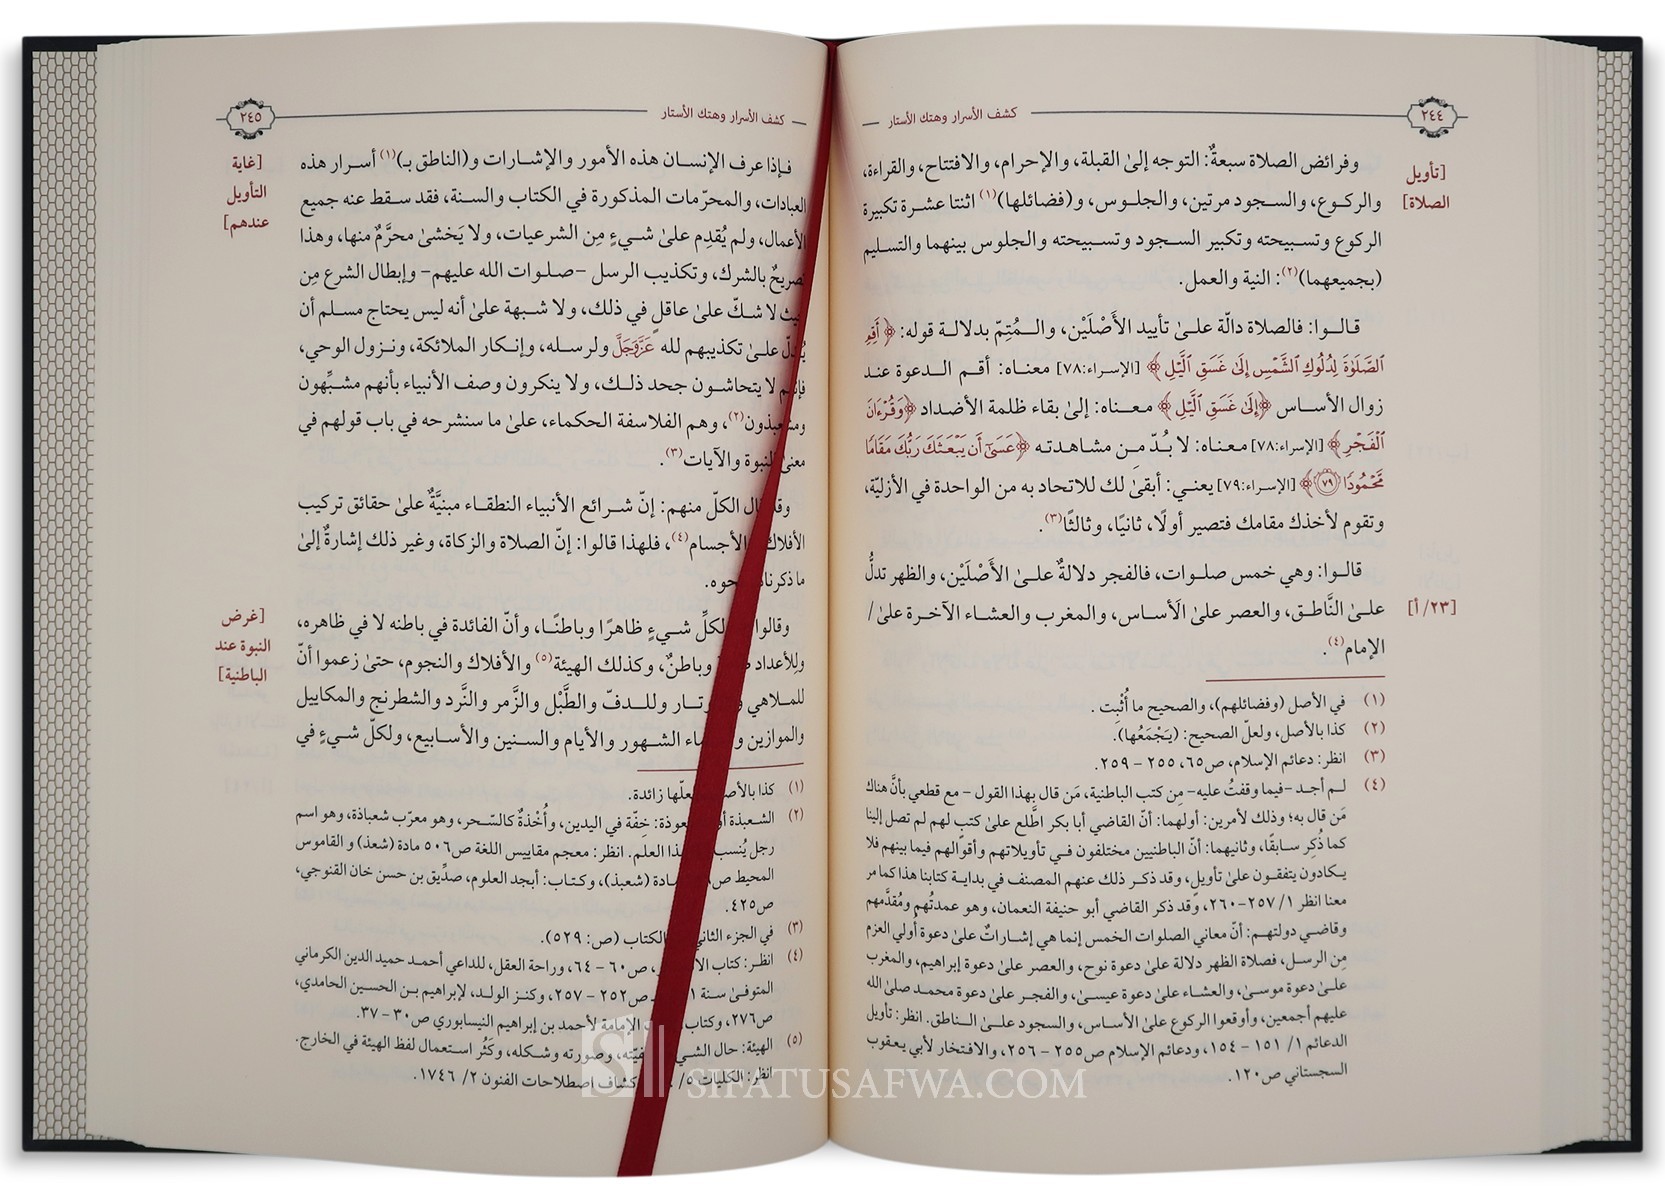 ٢٤٤
كشف الأسرار وهتك الأستار
[تأويل
الصلاة]
وفرائض الصلاة سبعةٌ: التوجه إلىٰ القبلة، والإحرام، والافتتاح، والقراءة،
والركـوع، والسـجود مرتين، والجلـوس، و(فضائلها)(١) اثنتا عشـرة تكبيرة
الركوع وتسـبيحته وتكبير السـجود وتسـبيحته والجلوس بينهما والتسليم
(بجميعهما)(٢): النية والعمل.
قالـوا: فالصلاة دالّة علـىٰ تأييد الأَصْلَيْن، والـمُتِمّ بدلالـة قوله: ﴿أَقِمِ
ٱلصَّلَوٰةَ لِدُلُوكِ ٱلشَّمْسِ إِلَىٰ غَسَقِ ٱلَّيْلِ﴾ [الإسراء:٧٨] معناه: أقـم الـدعوة عنـد
زوال الأسـاس ﴿إِلَىٰ غَسَقِ ٱلَّيْلِ﴾ معـناه: إلىٰ بقاء ظلمة الأضـداد ﴿وَقُرْءَانَ
ٱلْفَجْرِ﴾ [الإسراء:٧٨] معـناه: لا بُـدّ مـن مشاهدته ﴿عَسَىٰٓ أَن يَبْعَثَكَ رَبُّكَ مَقَامًا
مَّحْمُودًا ٧٩﴾ [الإسراء:٧٩] يعني: أبقىٰ لك للاتحاد به من الواحدة في الأزليّة،
وتقوم لأخذك مقامك فتصير أولًا، ثانيًا، وثالثًا(٣).
قالوا: وهي خمس صلـوات، فالفجر دلالةٌ علـىٰ الأَصْلَيْن، والظهر تدلُّ
[٢٣/ أ]
علـىٰ النَّاطـق، والعصر علىٰ الأساس، والمغرب والعشاء الآخـرة علىٰ/
الإمام(٤).
(١) في الأصل (وفضائلهم)، والصحيح ما أُثْبِت .
(٢) كذا بالأصل، ولعلّ الصحيح: (يـَجْمَعُها).
(٣) انظر: دعائم الإسلام، ص٦٥، ٢٥٥ – ٢٥٩.
(٤) لـم أجـد –فيما وقفتُ عليه– مِن كتب الباطنية، مَن قال بهـذا القول – مع قطعي بأنَّ هناك
مَن قال به؛ وذلك لأمرين: أولهما: أنّ القاضي أبا بكر اطَّلع علىٰ كتب لهم لم تصل إلينا
كما ذُكِر سـابقًا، وثانيهما: أنّ الباطنيين مختلفون فـي تأويلاتهم وأقوالهم فيما بينهم فلا
يـكادون يتفقون علىٰ تأويلٍ، وقد ذكـر ذلك عنهم المصنف في بدايـة كتابنا هذا كما مر
معنا انظر ١/ ٢٥٧–٢٦٠، وقد ذكر القاضي أبو حنيفة النعمان، وهو عمدتُهم ومُقدَّمهم
وقاضـي دولتهـم: أنّ معاني الصلوات الخمس إنما هي إشاراتٌ علىٰ دعوة أُولي العزم
مِن الرسل، فصلاة الظهر دلالة علىٰ دعوة نوح، والعصر علىٰ دعوة إبراهيم، والمغرب
علـىٰ دعوة موسىٰ، والعشاء علىٰ دعوة عيسىٰ، والفجر علىٰ دعوة محمـد صلىٰ الله
عليهم أجمعين، وأوقعوا الركوع علىٰ الأساس، والسجود علـىٰ الناطق. انظر: تأويل
الدعائم ١/ ١٥١ – ١٥٤، ودعائم الإسلام ص٢٥٥ – ٢٥٦، والافتخار لأبي يعقوب
السجستاني ص١٢٠.
كشف الأسرار وهتك الأستار
٢٤٥
[غاية
التأويل
عندهم]
فـإذا عرف الإنسـان هذه الأمور والإشارات و(الناطق بـ)(١) أسـرار هذه
العبادات، والمحرّمات المذكورة في الكتاب والسنة، فقد سـقط عنه جميع
الأعمال، ولم يُقدِم علىٰ شـيءٍ مِن الشرعيات، ولا يَخشىٰ محرَّمٌ منها، وهذا
تصريحٌ بالشرك، وتكذيب الرسل –صلـوات الله عليهم– وإبطال الشرع مِن
حيث لا شكّ علىٰ عاقلٍ في ذلك، ولا شـبهة علىٰ أنه ليس يحتاج مسلم أن
علىٰ تكذيبهم لله عَزَّوَجَلَّ ولرسله، وإنكار الملائكة، ونـزول الوحي،
لا يتحاشون جحد ذلـك، ولا ينكرون وصف الأنبياء بأنهم مشبِّهون
ومشعبذون(٢)، وهم الفلاسفة الحكماء، علىٰ ما سنشرحه في باب قولهم في
معنىٰ النبوة والآيات(٣).
الكلّ منهم: إنّ شـرائع الأنبياء النطقـاء مبنيَّةٌ علىٰ حقائق تركيب
الأفلاك الأجسام(٤)، فلهذا قالوا: إنّ الصلاة والزكاة، وغير ذلك إشارةٌ إلىٰ
ما ذكرناه.
[غرض
النبوة عند
الباطنية]
وقالوا لكلِّ شـيءٍ ظاهرًا وباطنًـا، وأنّ الفائدة في باطنه لا في ظاهره،
وللأعداد وباطنٌ، وكذلك الهيئة(٥) والأفلاك والنجوم، حتىٰ زعموا أنّ
للملاهي وللـدفّ والطَّبْل والزَّمر والنَّرد والشطرنج والمكاييل
والموازين الشـهور والأيام والسنين والأسابيع، ولكلّ شـيءٍ في
(١) كذا بالأصل ولعلّها زائدة.
(٢) الشـعبذة أو الشعوذة: خفّة في اليدين، وأُخْذةٌ كالسّحر، وهو معرّب شعباذة، وهو اسم
رجل يُنسب هذا العلم. انظر: معجم مقاييس اللغة ص٥٠٦ مادة (شعذ) و القاموس
المحيط مادة (شعبذ)، وكتـاب: أبجد العلوم، صدِّيق بن حسن خان القنوجي،
ص٤٢٥.
(٣) في الجزء الثاني الكتاب (ص: ٥٢٩).
(٤) انظـر: كتاب ص٦٠ – ٦٤، وراحة العقل، للداعي أحمـد حميد الدين الكرماني
المتوفىٰ سنة ص٢٥٢ – ٢٥٧، وكنـز الولـد، لإبراهيم بـن الحسين الحامدي،
ص٢٧٦، وكتاب الإمامة لأحمد بن إبراهيم النيسابوري ص٣٠ – ٣٧.
(٥) الهيئة: حال الشيء وصورته وشـكله، وكثُر اسـتعمال لفظ الهيئة في الخارج.
انظر: الكليات ٥/ كشاف اصطلاحات الفنون ٢/ ١٧٤٦.
SIFATUSAFWA.COM